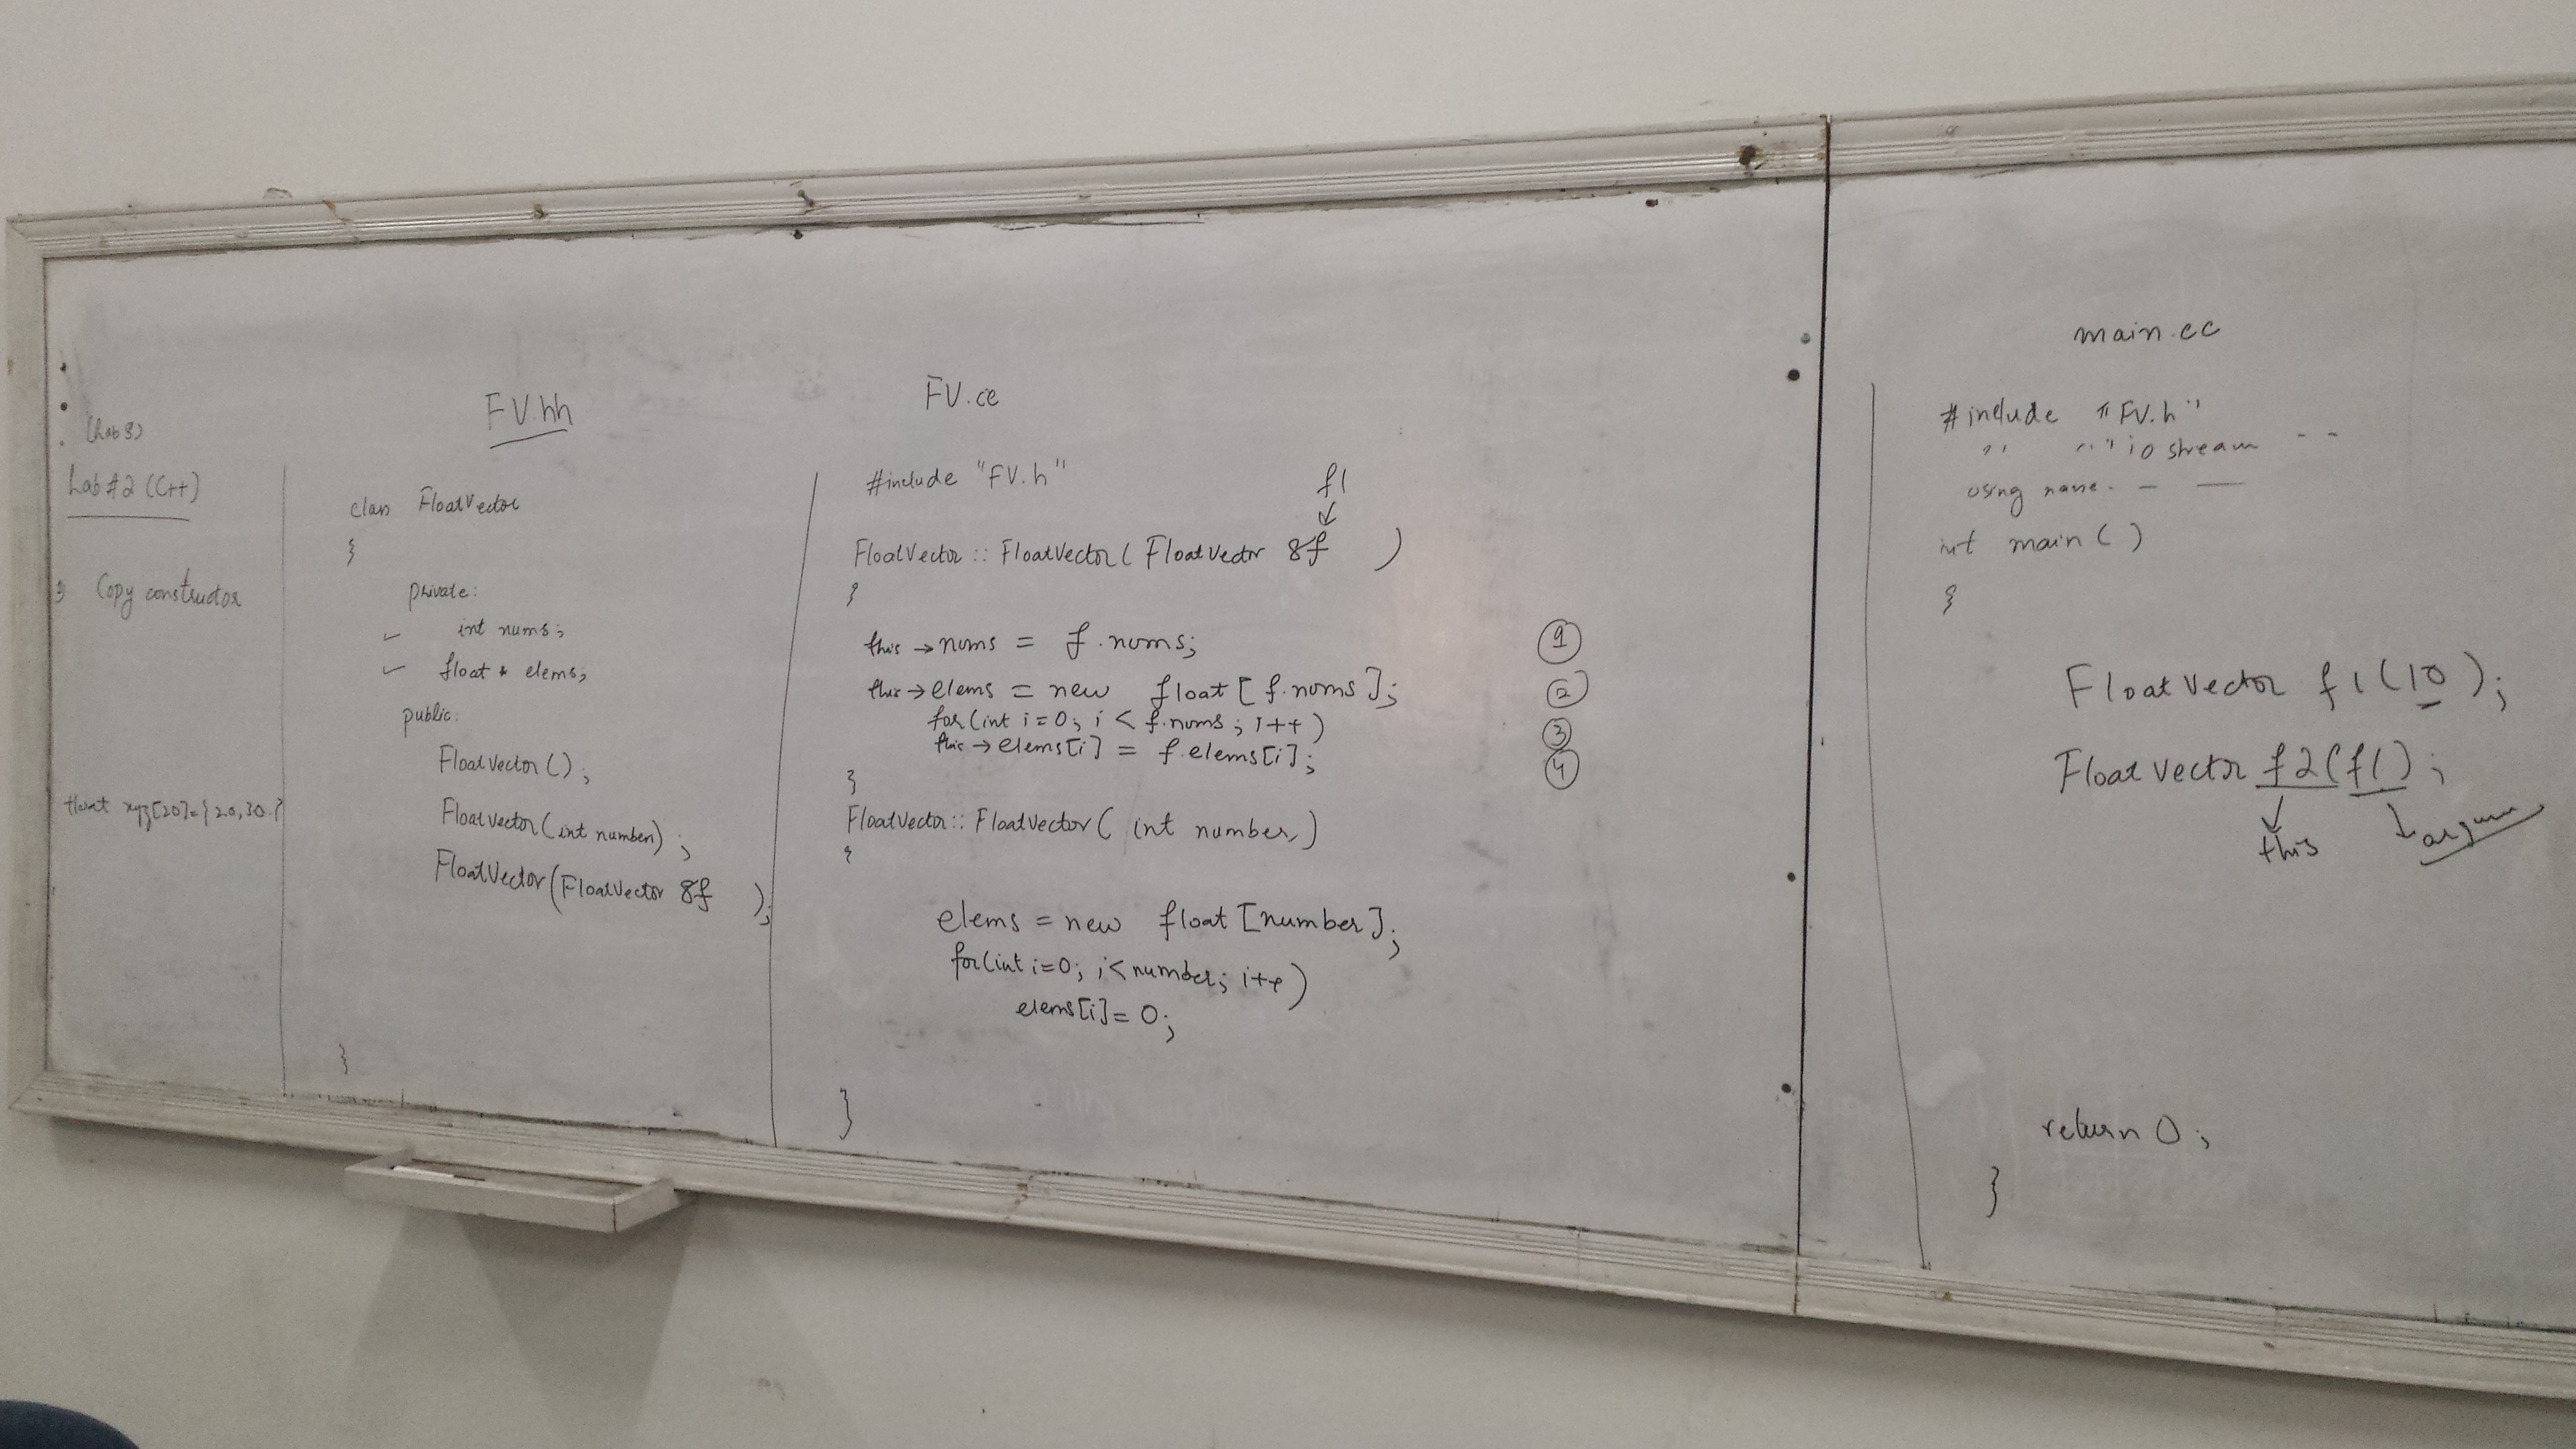 Lab #2 (C++)
Copy constructor
float xyz[20]={20,30.}
FV.hh
class FloatVector
{
private:
✓ int nums;
✓ float * elems;
public:
FloatVector();
FloatVector(int number);
FloatVector(FloatVector &f );
}
FV.cc
#include "FV.h"
f1
↓
FloatVector :: FloatVector( FloatVector &f )
{
this → nums = f.nums; ①
this → elems = new float[f.nums]; ②
for(int i=0; i < f.nums; i++) ③
this → elems[i] = f.elems[i]; ④
}
FloatVector :: FloatVector( int number )
{
elems = new float[number];
for(int i=0; i<number; i++)
elems[i]=0;
}
main.cc
#include "FV.h"
" " " iostream - -
using name. - —
int main()
{
FloatVector f1(10);
FloatVector f2(f1);
↓ ↓
this argum
return 0;
}